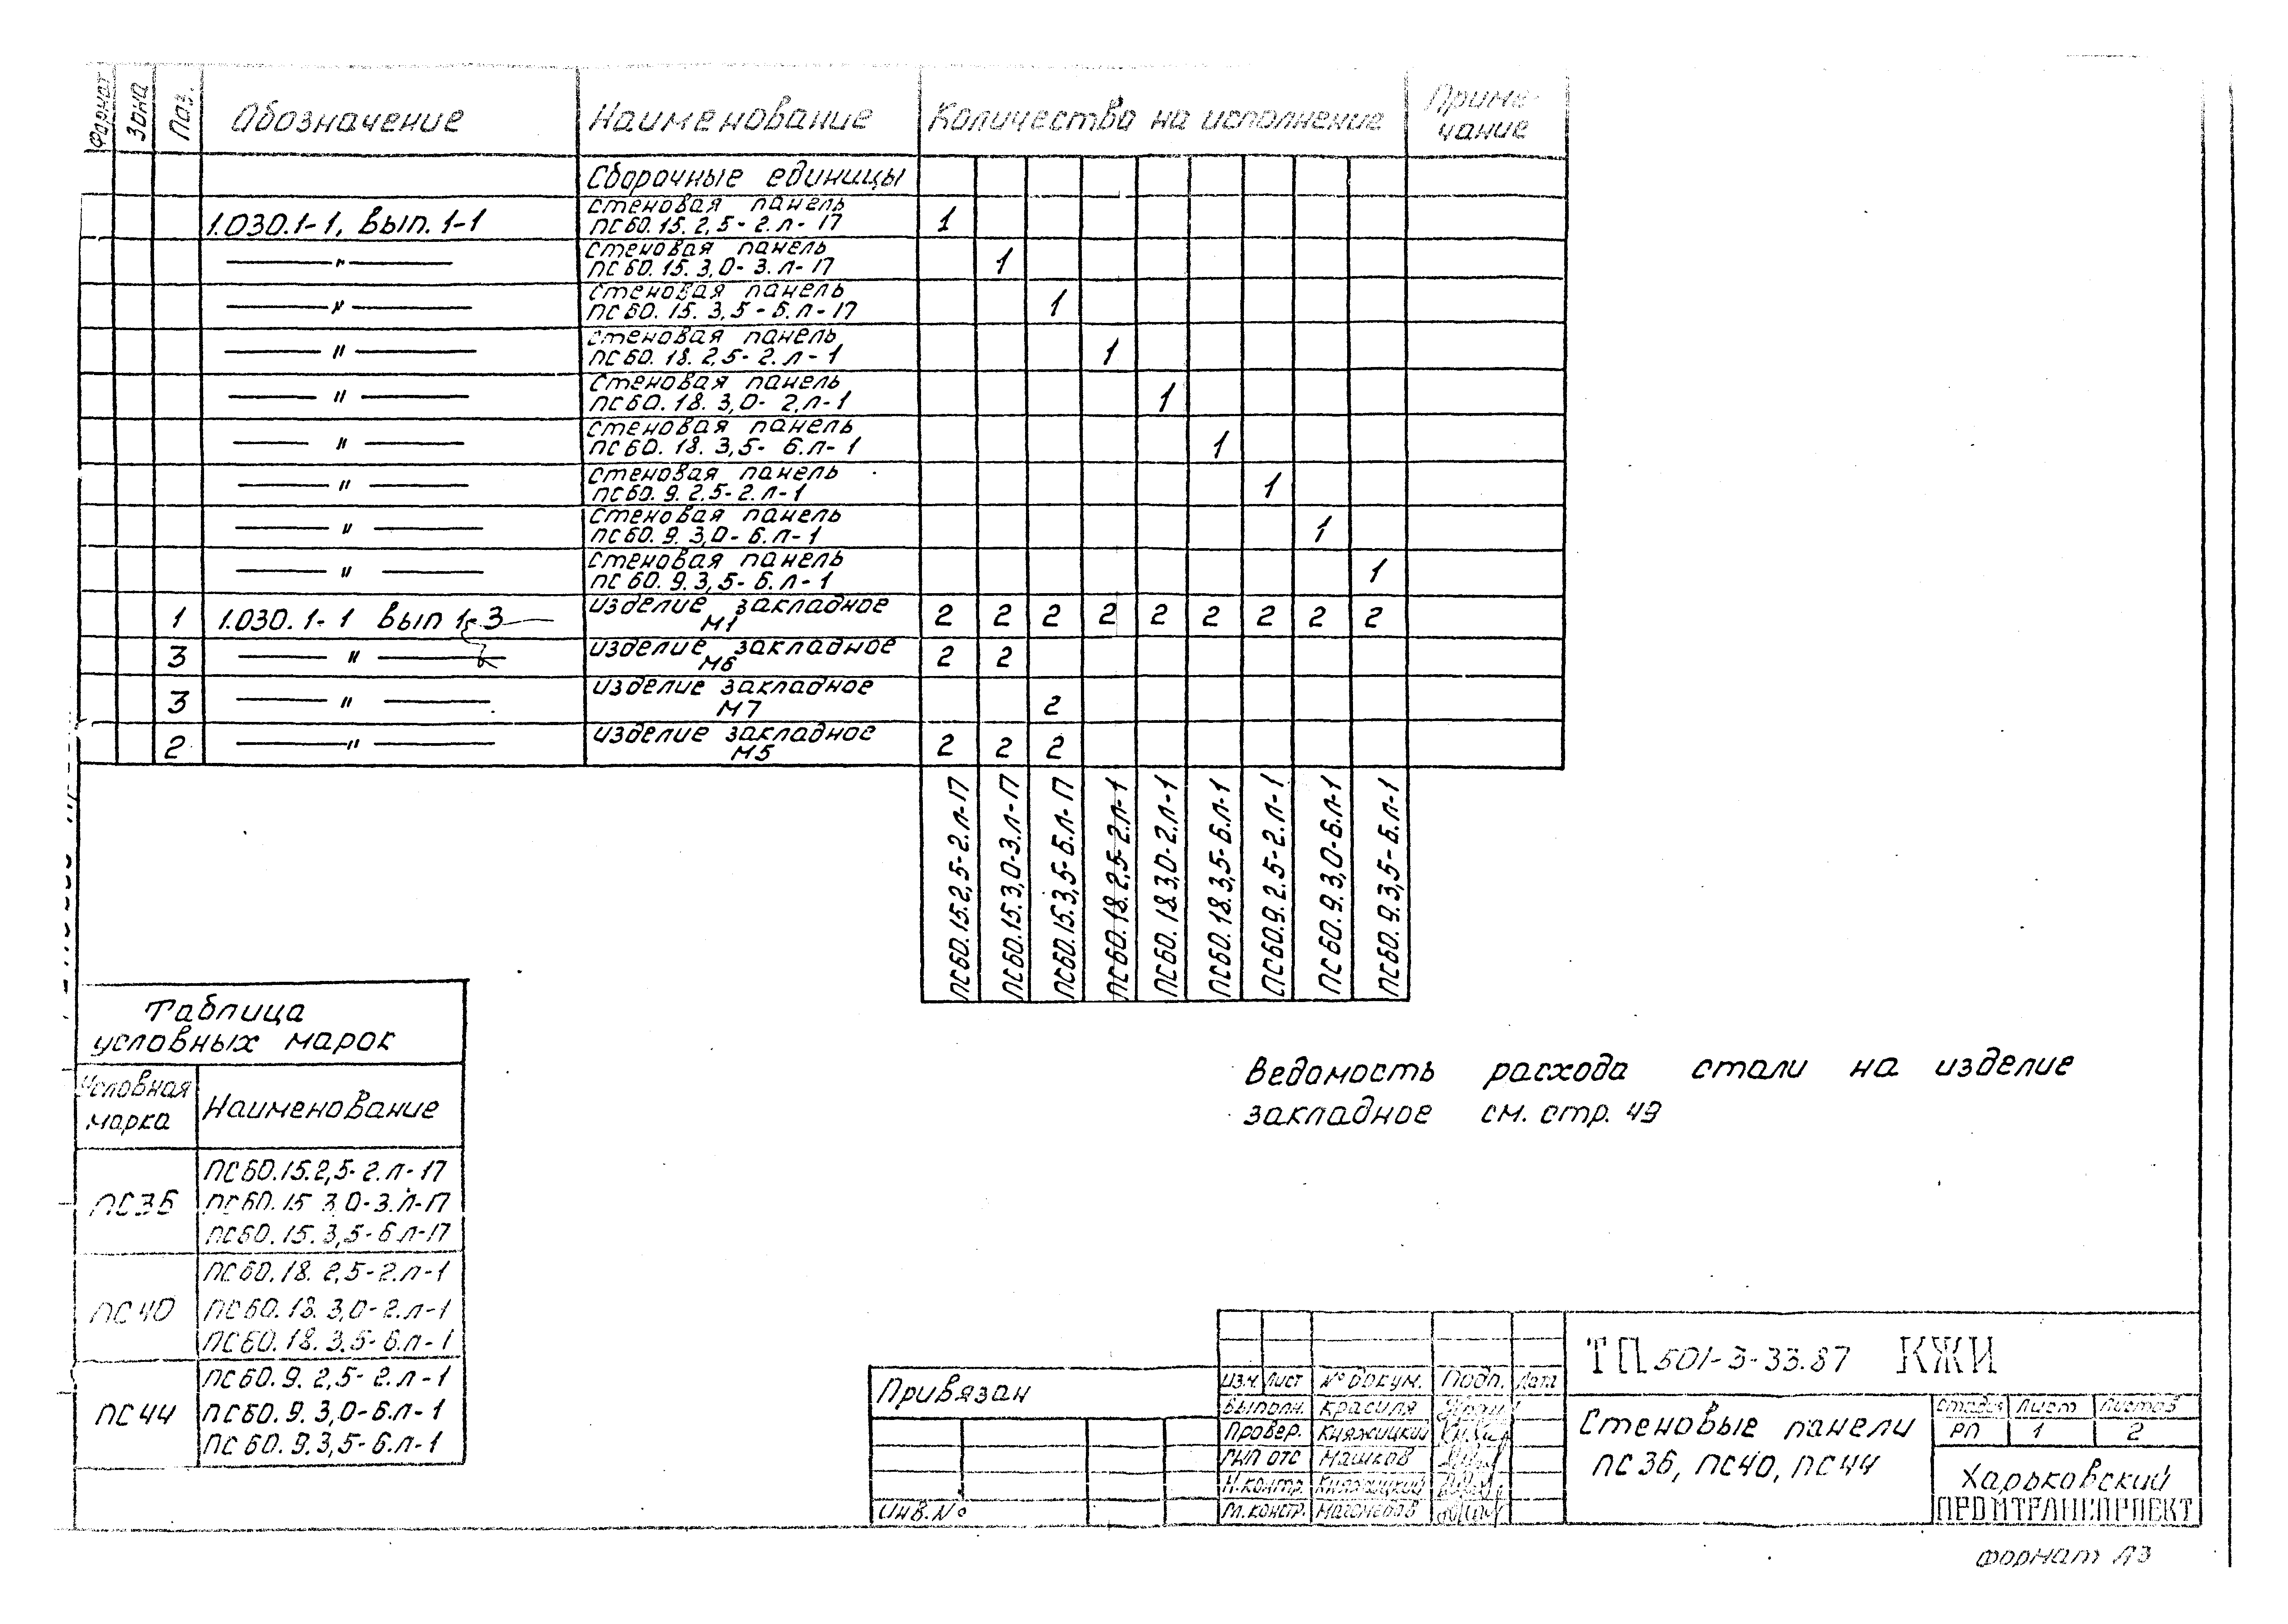 Формат Зона Поз. Обозначение Наименование Количество на исполнение Приме-
чание
Сборочные единицы
1.030.1-1, вып. 1-1 стеновая панель
ПС60.15.2,5-2.л-17 1
—"— стеновая панель
ПС60.15.3,0-3.л-17 1
—"— стеновая панель
ПС60.15.3,5-6.л-17 1
—"— стеновая панель
ПС60.18.2,5-2.л-1 1
—"— стеновая панель
ПС60.18.3,0-2.л-1 1
—"— стеновая панель
ПС60.18.3,5-6.л-1 1
—"— стеновая панель
ПС60.9.2,5-2.л-1 1
—"— стеновая панель
ПС60.9.3,0-6.л-1 1
—"— стеновая панель
ПС60.9.3,5-6.л-1 1
1 1.030.1-1 вып 1-3 изделие закладное
М1 2 2 2 2 2 2 2 2 2
3 —"— изделие закладное
М6 2 2
3 —"— изделие закладное
М7 2
2 —"— изделие закладное
М5 2 2 2
ПС60.15.2,5-2.л-17
ПС60.15.3,0-3.л-17
ПС60.15.3,5-6.л-17
ПС60.18.2,5-2.л-1
ПС60.18.3,0-2.л-1
ПС60.18.3,5-6.л-1
ПС60.9.2,5-2.л-1
ПС60.9.3,0-6.л-1
ПС60.9.3,5-6.л-1
Таблица
условных марок
Условная
марка Наименование
ПС36
ПС60.15.2,5-2.л-17
ПС60.15 3,0-3.л-17
ПС60.15.3,5-6л-17
ПС40
ПС60.18.2,5-2.л-1
ПС60.18.3,0-2.л-1
ПС60.18.3,5-6.л-1
ПС44
ПС60.9.2,5-2.л-1
ПС60.9.3,0-6.л-1
ПС60.9.3,5-6.л-1
Ведомость расхода стали на изделие
закладное см. стр. 49
Привязан
Инв. №
Изм. Лист № докум. Подп. Дата
Выполн. Красиля
Провер. Княжицкий
ГИП ОТС Машков
Н.контр. Княжицкий
Гл.констр.
ТП 501-3-33.87 КЖИ
Стеновые панели
ПС36, ПС40, ПС44
Стадия Лист Листов
РП 1 2
Харьковский
ПРОМТРАНСПРОЕКТ
Формат А3